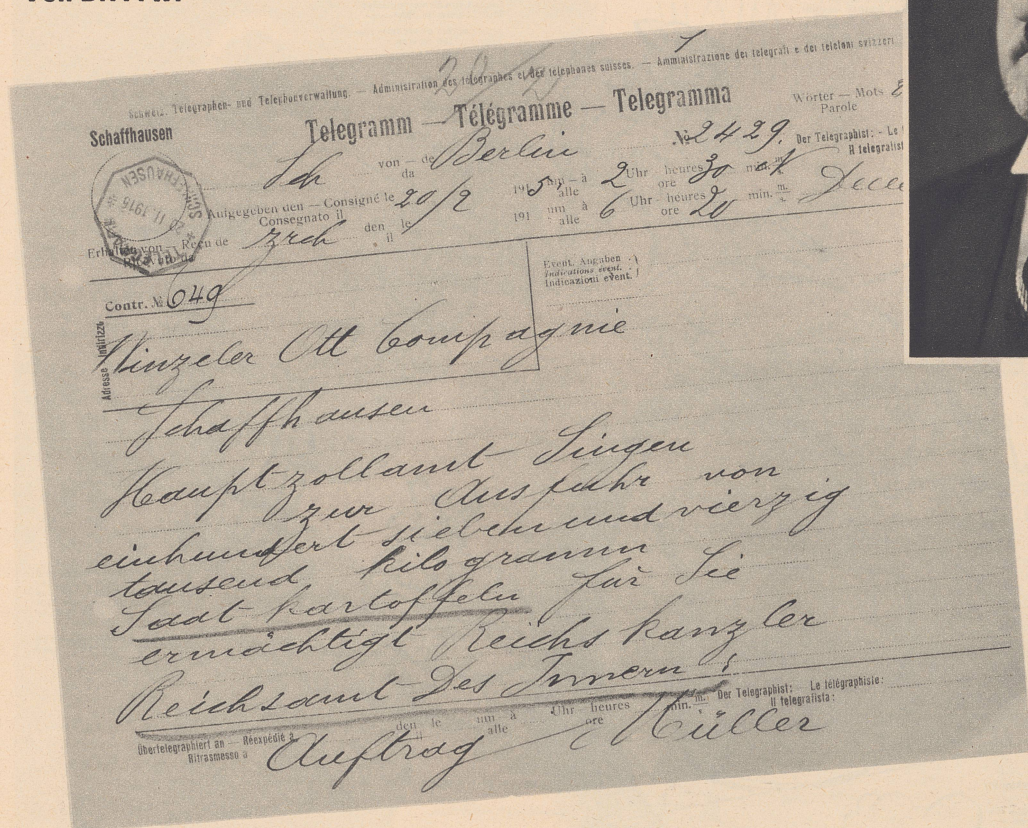 Schweiz. Telegraphen- und Telephonverwaltung. — Administration des télégraphes et des téléphones suisses. — Amministrazione dei telegrafi e dei telefoni svizzeri.
Schaffhausen
Telegramm — Télégramme — Telegramma
Wörter — Mots
Parole
von — de Berlin
da
№ 2429.
Der Telegraphist: - Le
Il telegrafist
Aufgegeben den — Consigné le 20/2 1915 um — à 2 Uhr heures 30 min. m.
Consegnato il alle ore
Erhalten von — Reçu de zrch den le 191 um à 6 Uhr - heures 20 min. m.
Ricevuto da il alle ore
SCHAFFHAUSEN
Contr. № 049
Event. Angaben
Indications évent.
Indicazioni event.
Adresse Indirizzo
Winzeler Ott Compagnie
Schaffhausen
Hauptzollamt Singen
zur Ausfuhr von
einhundert siebenundvierzig
tausend kilogramm
Saat kartoffeln für Sie
ermächtigt Reichskanzler
Reichsamt Des Innern :
Übertelegraphiert an — Réexpédié à den le um à Uhr heures min. m. Der Telegraphist: Le télégraphiste:
Ritrasmesso a alle ore Il telegrafista:
Auftrag Müller